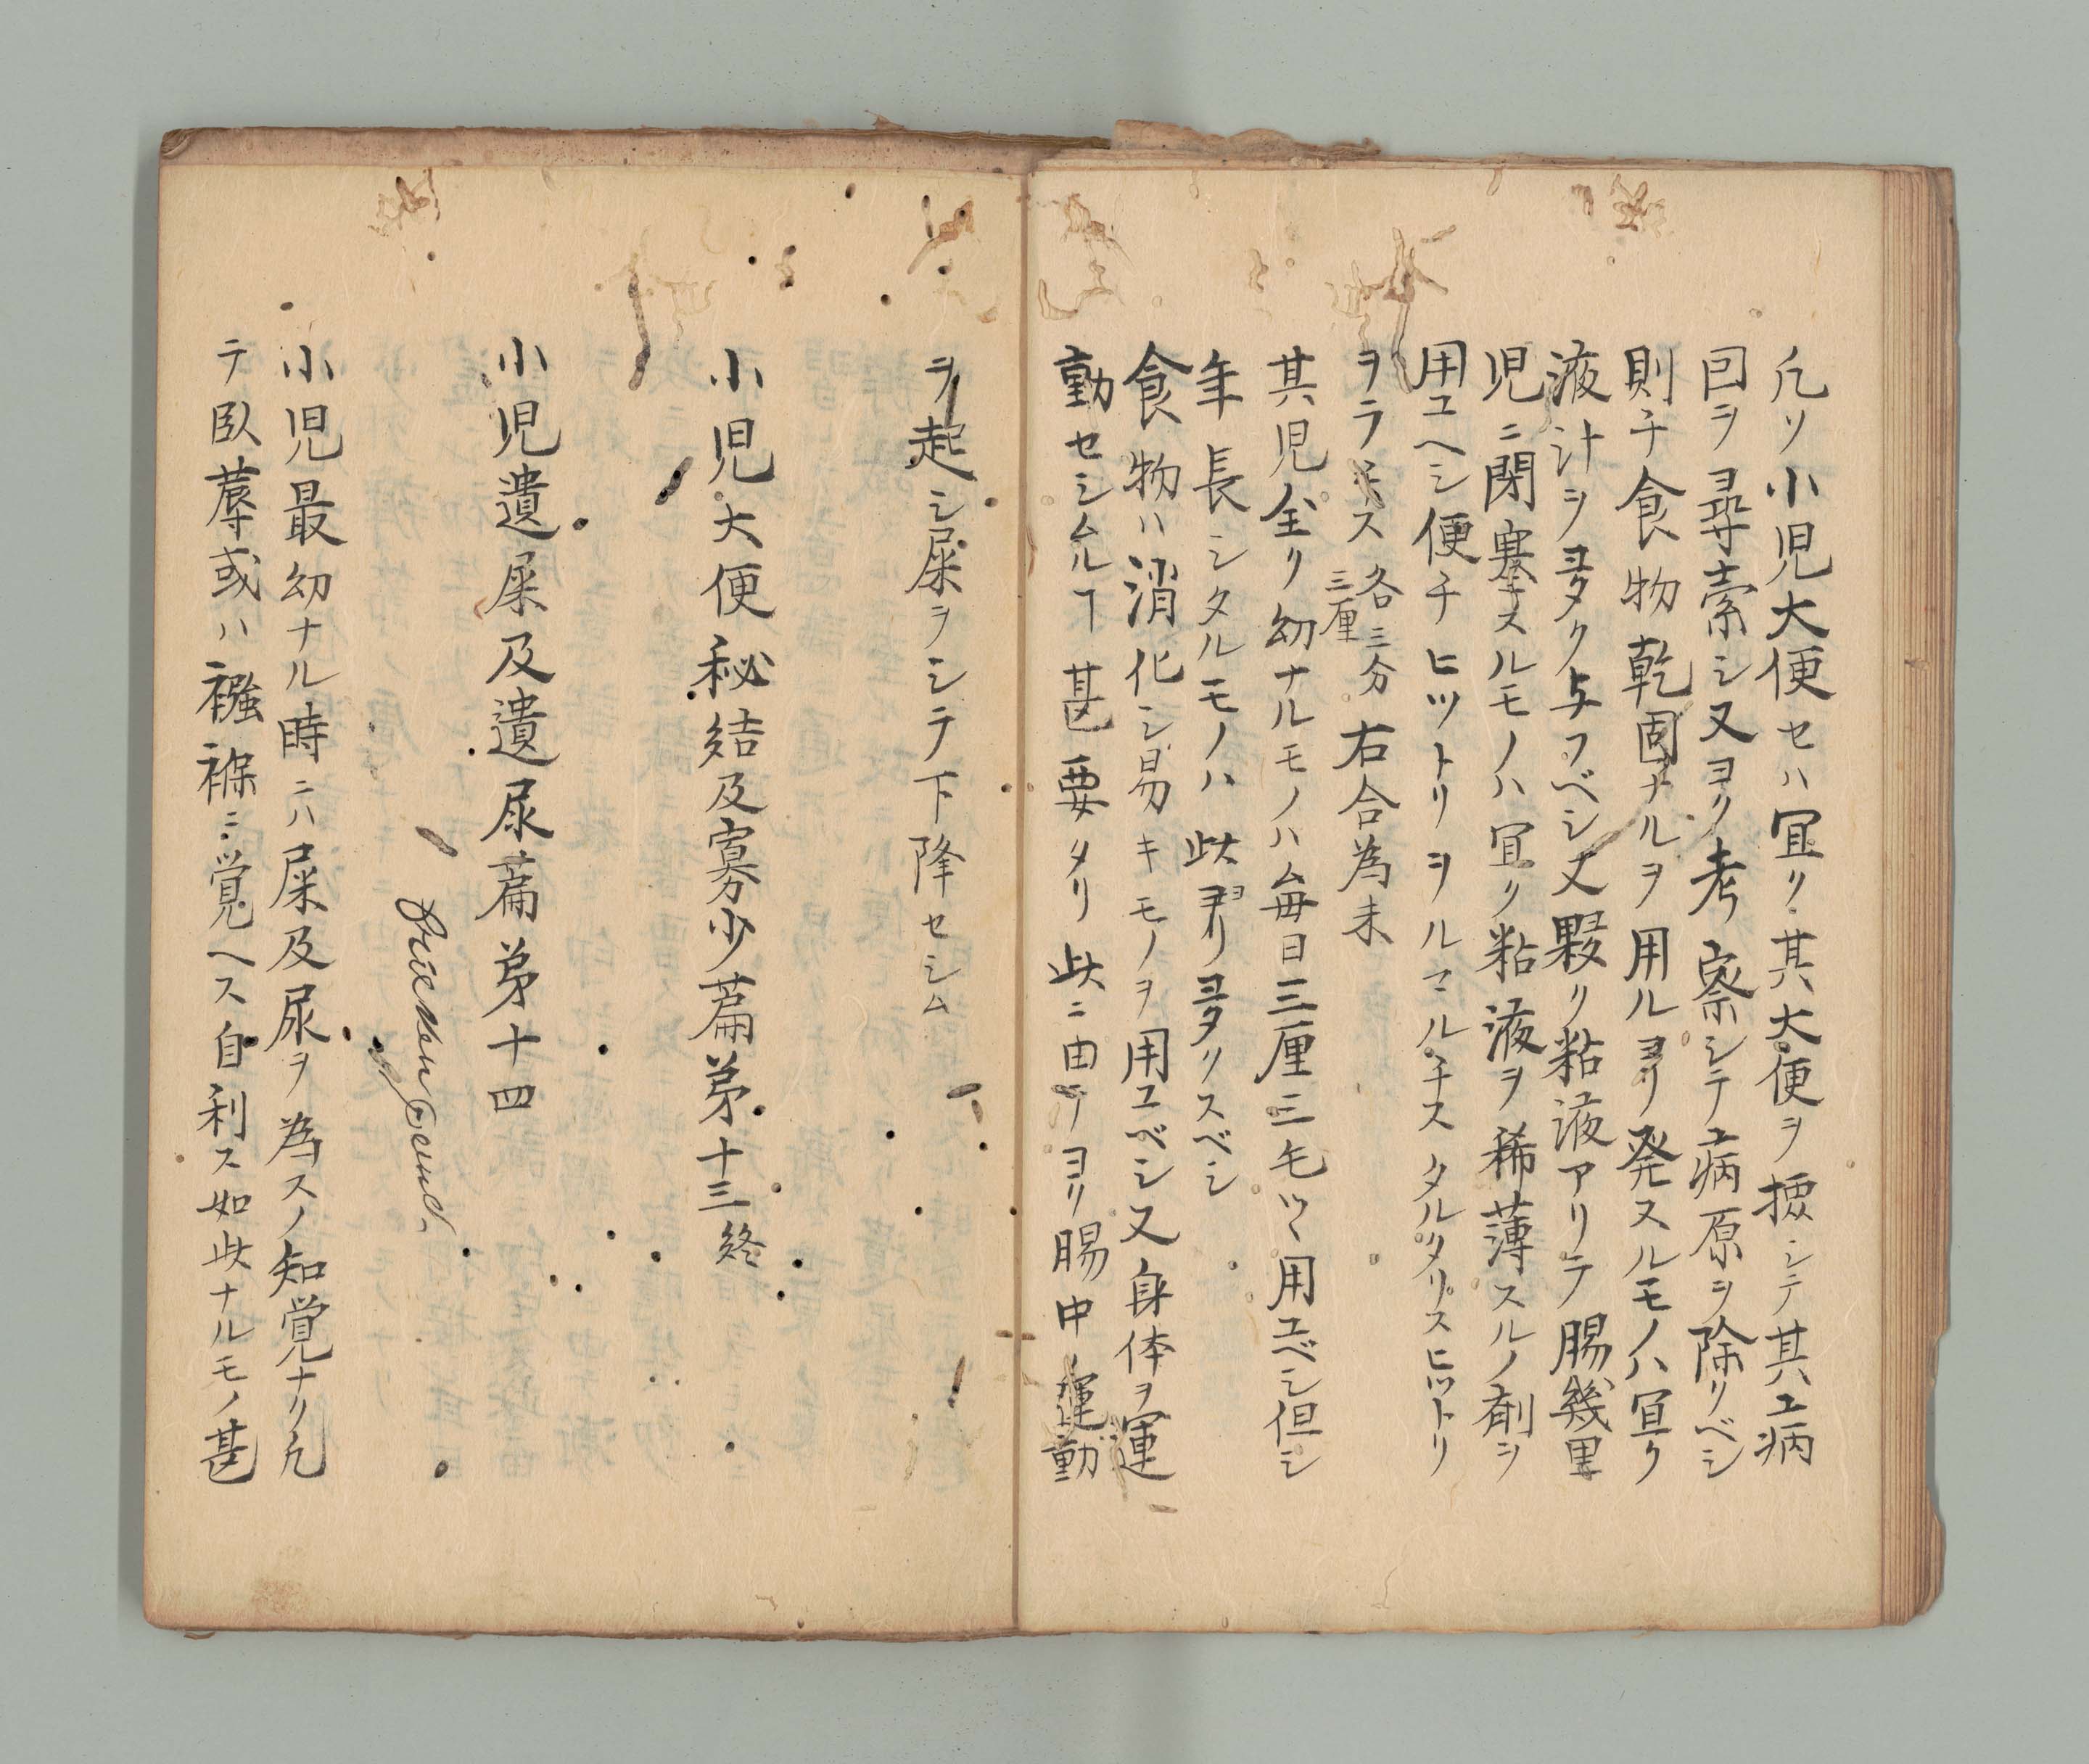 凡ソ小児大便セハ宜ク其大便ヲ撿シテ其疒病
因ヲ尋索シ又ヨク考察シテ病原ヲ除リベシ
則チ食物乾固ナルヲ用ルヨリ発スルモノハ宜ク
液汁ヲ多ク与フベシ又夥ク粘液アリテ腸幾里
児ニ閉塞スルモノハ宜ク粘液ヲ稀薄スルノ剤ヲ
用ユヘシ便チヒツトリヲルマルチスタルタリスヒツトリ
ヲラモス 各三分三厘 右合為末
其児全ク幼ナルモノハ毎日三厘三毛ツヽ用ユベシ但シ
年長シタルモノハ此ヨリ多クスベシ
食物ハ消化シ易キモノヲ用ユベシ又身体ヲ運
動セシムルヿ甚要タリ此ニ由テヨリ腸中ノ運動
ヲ起シ屎ヲシテ下降セシム
小児大便秘結及寡少篇第十三終
小児遺屎及遺尿篇第十四
小児最幼ナル時ニハ屎及尿ヲ為スノ知覚ナリ凡
テ臥蓐或ハ襁褓ニ覚ヘス自利ス如此ナルモノ甚